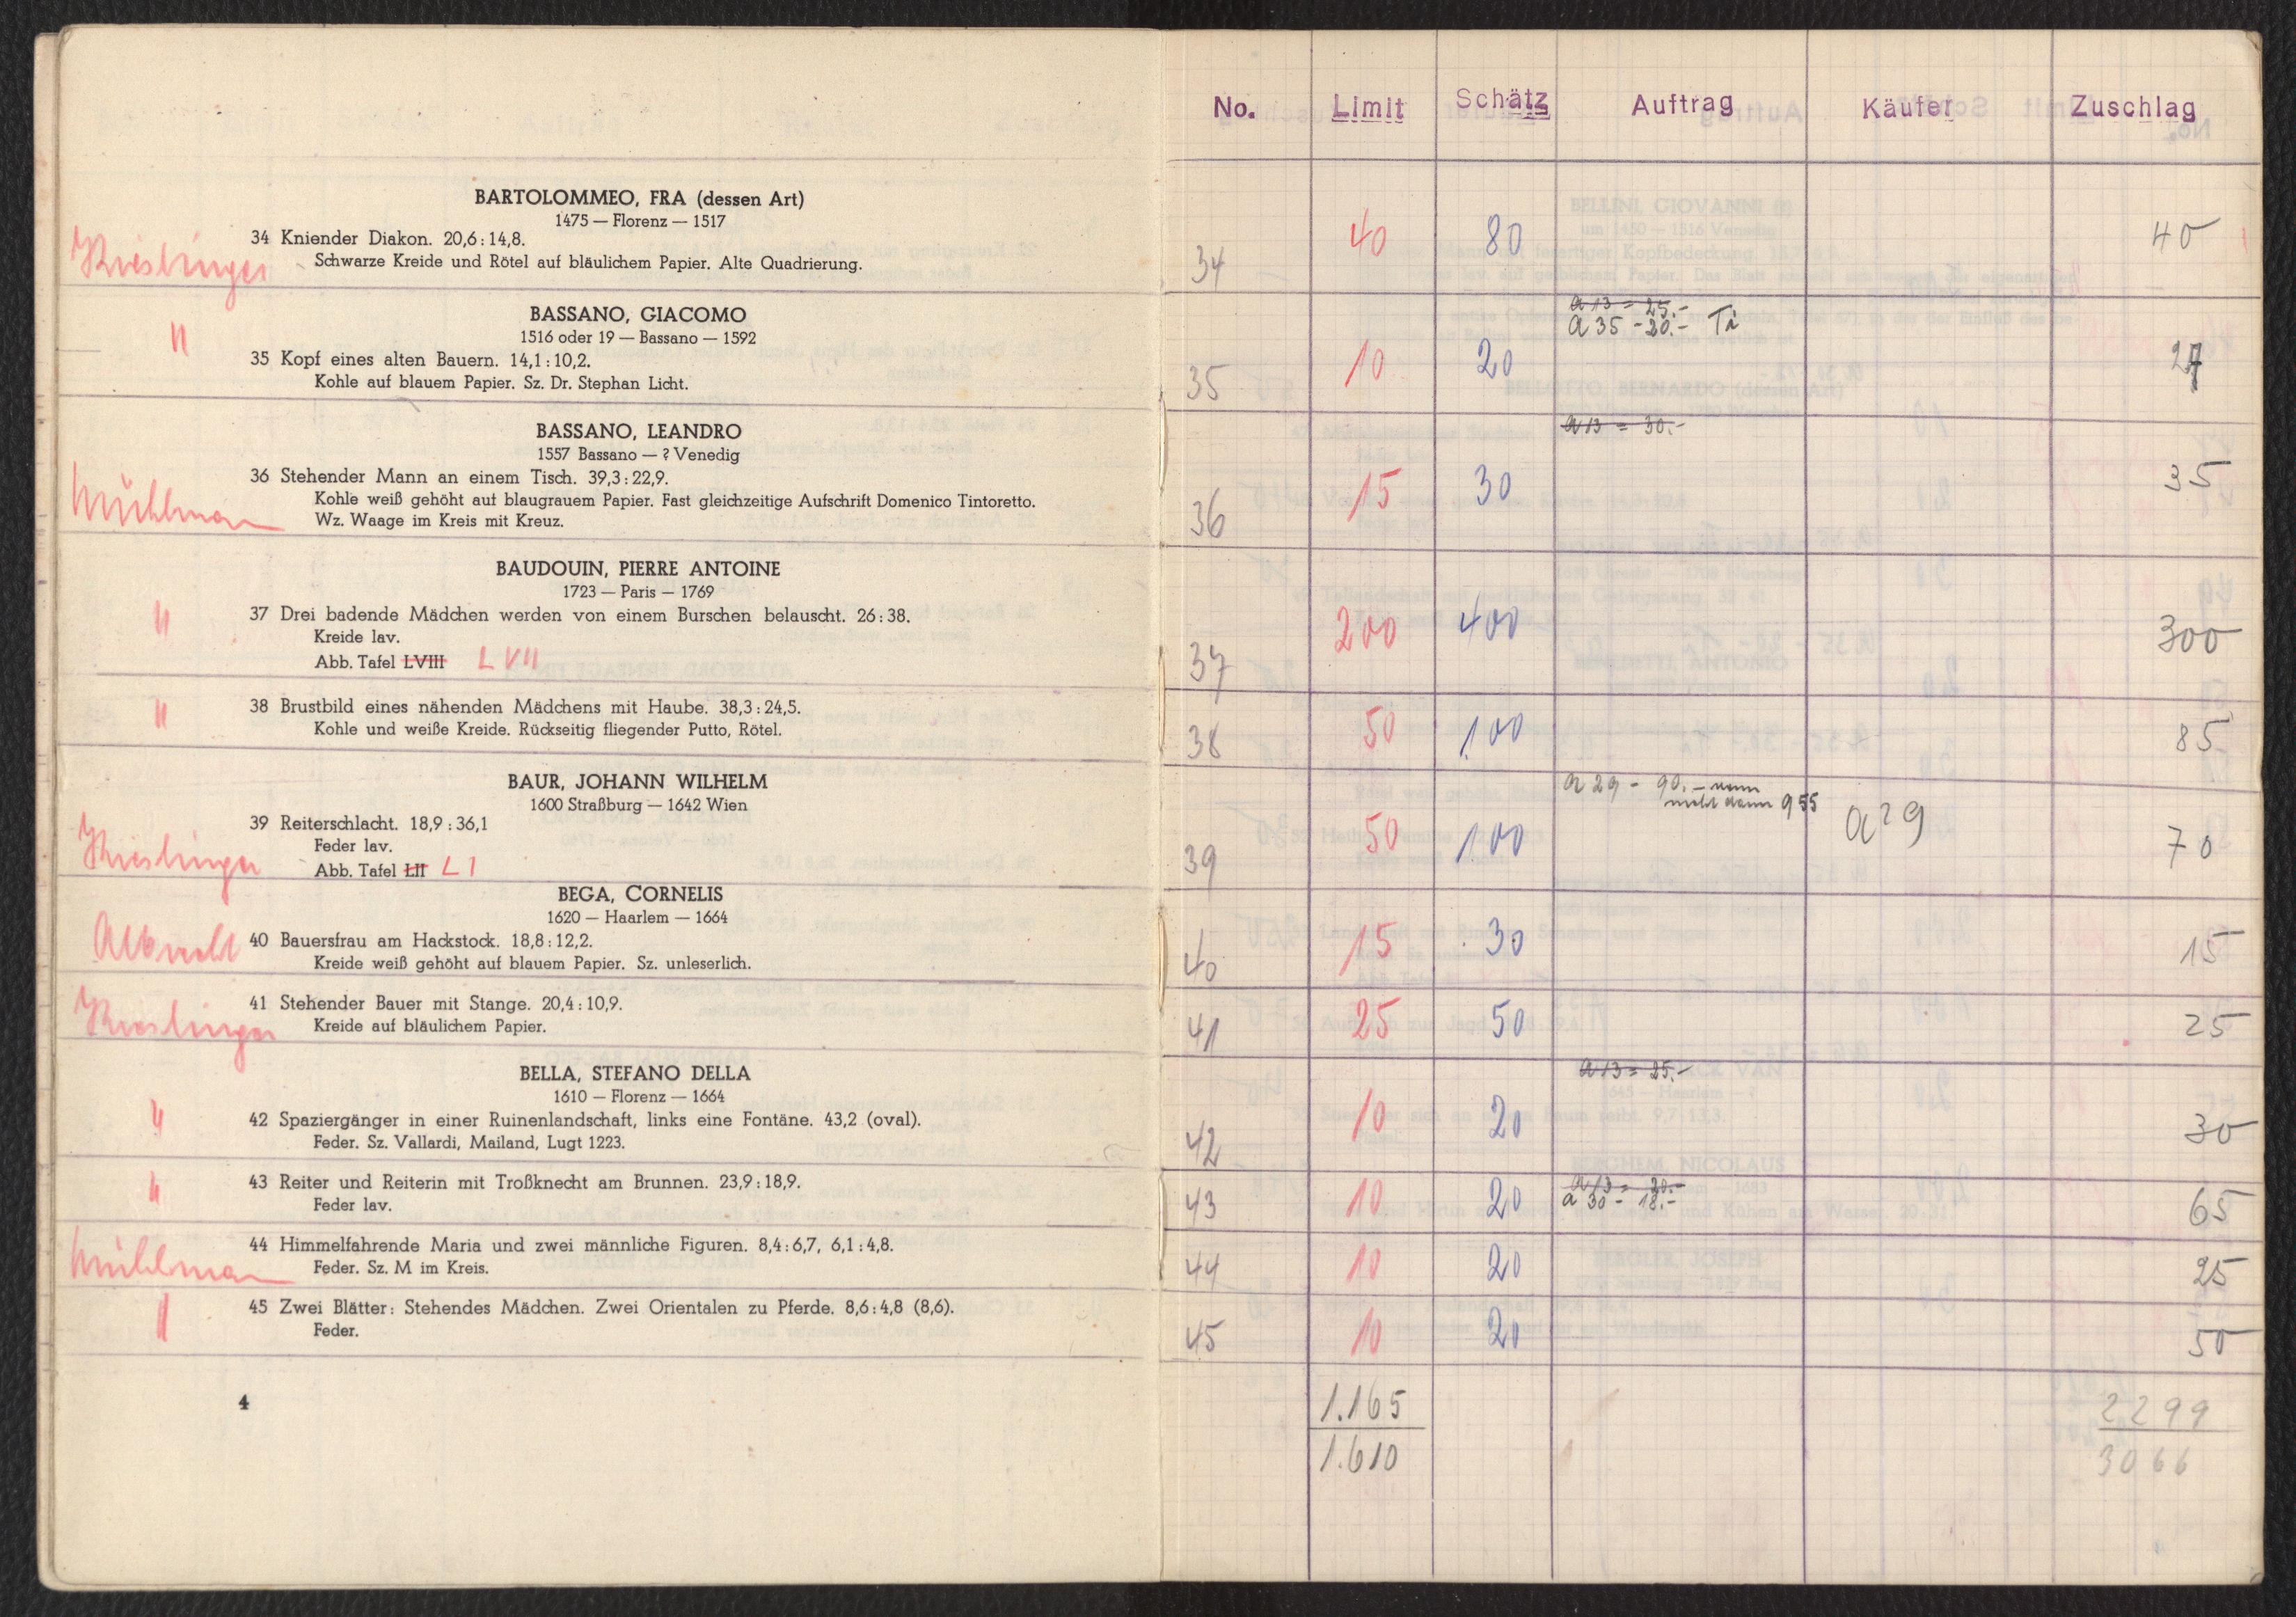 BARTOLOMMEO, FRA (dessen Art)
1475 — Florenz — 1517
34 Kniender Diakon. 20,6:14,8.
Schwarze Kreide und Rötel auf bläulichem Papier. Alte Quadrierung.
Kieslinger
BASSANO, GIACOMO
1516 oder 19 — Bassano — 1592
"
35 Kopf eines alten Bauern. 14,1:10,2.
Kohle auf blauem Papier. Sz. Dr. Stephan Licht.
BASSANO, LEANDRO
1557 Bassano — ? Venedig
36 Stehender Mann an einem Tisch. 39,3:22,9.
Mühlman
Kohle weiß gehöht auf blaugrauem Papier. Fast gleichzeitige Aufschrift Domenico Tintoretto.
Wz. Waage im Kreis mit Kreuz.
BAUDOUIN, PIERRE ANTOINE
1723 — Paris — 1769
" 37 Drei badende Mädchen werden von einem Burschen belauscht. 26:38.
Kreide lav.
Abb. Tafel LVIII LVII
" 38 Brustbild eines nähenden Mädchens mit Haube. 38,3:24,5.
Kohle und weiße Kreide. Rückseitig fliegender Putto, Rötel.
BAUR, JOHANN WILHELM
1600 Straßburg — 1642 Wien
39 Reiterschlacht. 18,9:36,1
Feder lav.
Kieslinger
Abb. Tafel LII LI
BEGA, CORNELIS
1620 — Haarlem — 1664
Albrecht 40 Bauersfrau am Hackstock. 18,8:12,2.
Kreide weiß gehöht auf blauem Papier. Sz. unleserlich.
41 Stehender Bauer mit Stange. 20,4:10,9.
Kieslinger Kreide auf bläulichem Papier.
BELLA, STEFANO DELLA
1610 — Florenz — 1664
" 42 Spaziergänger in einer Ruinenlandschaft, links eine Fontäne. 43,2 (oval).
Feder. Sz. Vallardi, Mailand, Lugt 1223.
" 43 Reiter und Reiterin mit Troßknecht am Brunnen. 23,9:18,9.
Feder lav.
44 Himmelfahrende Maria und zwei männliche Figuren. 8,4:6,7, 6,1:4,8.
Mühlman Feder. Sz. M im Kreis.
" 45 Zwei Blätter: Stehendes Mädchen. Zwei Orientalen zu Pferde. 8,6:4,8 (8,6).
Feder.
4
No. Limit Schätz Auftrag Käufer Zuschlag
34 40 80 40
a 13 = 25.-
a 35 - 20.- Ti
35 10 20
a 13 = 30.-
36 15 30 35
37 200 400 300
38 50 100 85
a 29 - 90.- wenn
nicht dann 955
39 50 100 a 29 70
40 15 30 15
41 25 50 25
a 13 = 25.-
42 10 20 30
a 13 = 20.-
a 30 - 18.-
43 10 20 65
44 10 20 25
45 10 20 50
1.165 2299
1.610 3066